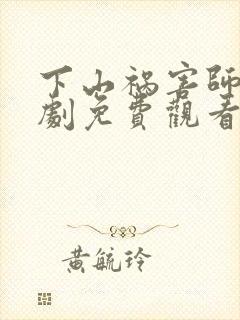 下山祸害師
劇免費觀看
黃毓玲